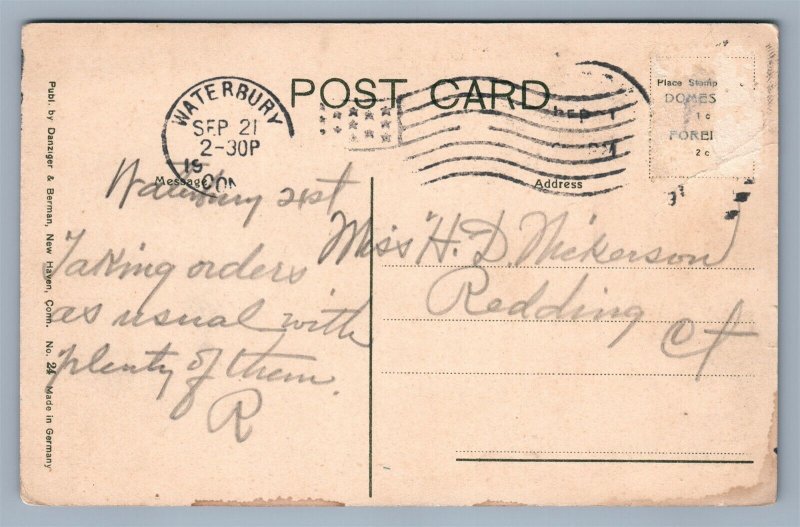 POST CARD
WATERBURY
SEP 21
2-30P
19
CON
Place Stamp
DOMES
1c
FOREI
2c
Message
Address
Waterbury 21st
Taking orders
as usual with
plenty of them.
R
Miss H. D. Nickerson
Redding
Ct
Publ. by Danziger & Berman, New Haven, Conn. No. 24 Made in Germany